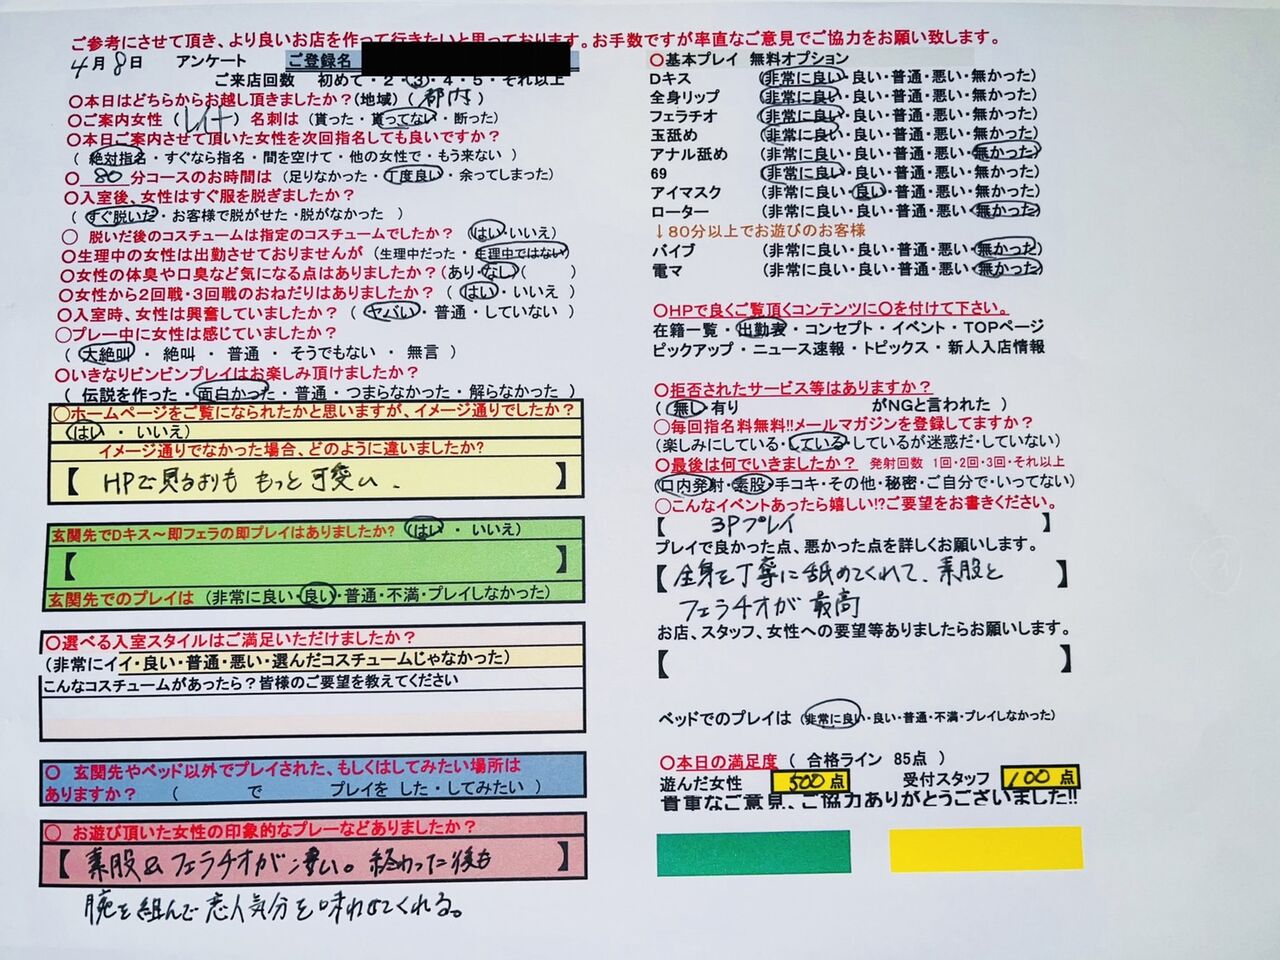 ご参考にさせて頂き、より良いお店を作って行きたいと思っております。お手数ですが率直なご意見でご協力をお願い致します。
4月8日 アンケート ご登録名
ご来店回数 初めて・2・3・4・5・それ以上
〇本日はどちらからお越し頂きましたか?(地域) ( 都内 )
〇ご案内女性 ( ) 名刺は (貰った・貰ってない・断った)
〇本日ご案内させて頂いた女性を次回指名しても良いですか?
( 絶対指名・すぐなら指名・間を空けて・他の女性で・もう来ない )
〇 80 分コースのお時間は (足りなかった・丁度良い・余ってしまった)
〇入室後、女性はすぐ服を脱ぎましたか?
( すぐ脱いだ・お客様で脱がせた・脱がなかった )
〇 脱いだ後のコスチュームは指定のコスチュームでしたか? (はい・いいえ)
〇生理中の女性は出勤させておりませんが (生理中だった・生理中ではない)
〇女性の体臭や口臭など気になる点はありましたか?(あり・なし)( )
〇女性から2回戦・3回戦のおねだりはありましたか? ( はい・いいえ )
〇入室時、女性は興奮していましたか? ( ヤバい・普通・していない )
〇プレー中に女性は感じていましたか?
( 大絶叫 ・ 絶叫 ・ 普通 ・ そうでもない ・ 無言 )
〇いきなりビンビンプレイはお楽しみ頂けましたか?
( 伝説を作った・面白かった・普通・つまらなかった・解らなかった )
〇ホームページをご覧になられたかと思いますが、イメージ通りでしたか?
(はい ・ いいえ)
イメージ通りでなかった場合、どのように違いましたか?
【 HPで見るよりも もっと可愛い. 】
玄関先でDキス～即フェラの即プレイはありましたか? (はい ・ いいえ)
【 】
玄関先でのプレイは (非常に良い・良い・普通・不満・プレイしなかった)
〇選べる入室スタイルはご満足いただけましたか?
(非常にイイ・良い・普通・悪い・選んだコスチュームじゃなかった)
こんなコスチュームがあったら?皆様のご要望を教えてください
〇 玄関先やベッド以外でプレイされた、もしくはしてみたい場所は
ありますか? ( で プレイを した・してみたい )
〇 お遊び頂いた女性の印象的なプレーなどありましたか?
【 素股&フェラチオが凄い。終わった後も 】
腕を組んで恋人気分を味わせてくれる。
〇基本プレイ 無料オプション
Dキス (非常に良い・良い・普通・悪い・無かった)
全身リップ (非常に良い・良い・普通・悪い・無かった)
フェラチオ (非常に良い・良い・普通・悪い・無かった)
玉舐め (非常に良い・良い・普通・悪い・無かった)
アナル舐め (非常に良い・良い・普通・悪い・無かった)
69 (非常に良い・良い・普通・悪い・無かった)
アイマスク (非常に良い・良い・普通・悪い・無かった)
ローター (非常に良い・良い・普通・悪い・無かった)
↓80分以上でお遊びのお客様
バイブ (非常に良い・良い・普通・悪い・無かった)
電マ (非常に良い・良い・普通・悪い・無かった)
〇HPで良くご覧頂くコンテンツに〇を付けて下さい。
在籍一覧・出勤表・コンセプト・イベント・TOPページ
ピックアップ・ニュース速報・トピックス・新人入店情報
〇拒否されたサービス等はありますか?
( 無し・有り がNGと言われた )
〇毎回指名料無料!!メールマガジンを登録してますか?
(楽しみにしている・している・しているが迷惑だ・していない)
〇最後は何でいきましたか? 発射回数 1回・2回・3回・それ以上
(口内発射・素股・手コキ・その他・秘密・ご自分で・いってない)
〇こんなイベントあったら嬉しい!?ご要望をお書きください。
【 3Pプレイ 】
プレイで良かった点、悪かった点を詳しくお願いします。
【 全身を丁寧に舐めてくれて、素股と 】
フェラチオが最高
お店、スタッフ、女性への要望等ありましたらお願いします。
【 】
ベッドでのプレイは (非常に良い・良い・普通・不満・プレイしなかった)
〇本日の満足度 ( 合格ライン 85点 )
遊んだ女性 500点 受付スタッフ 100点
貴重なご意見、ご協力ありがとうございました!!